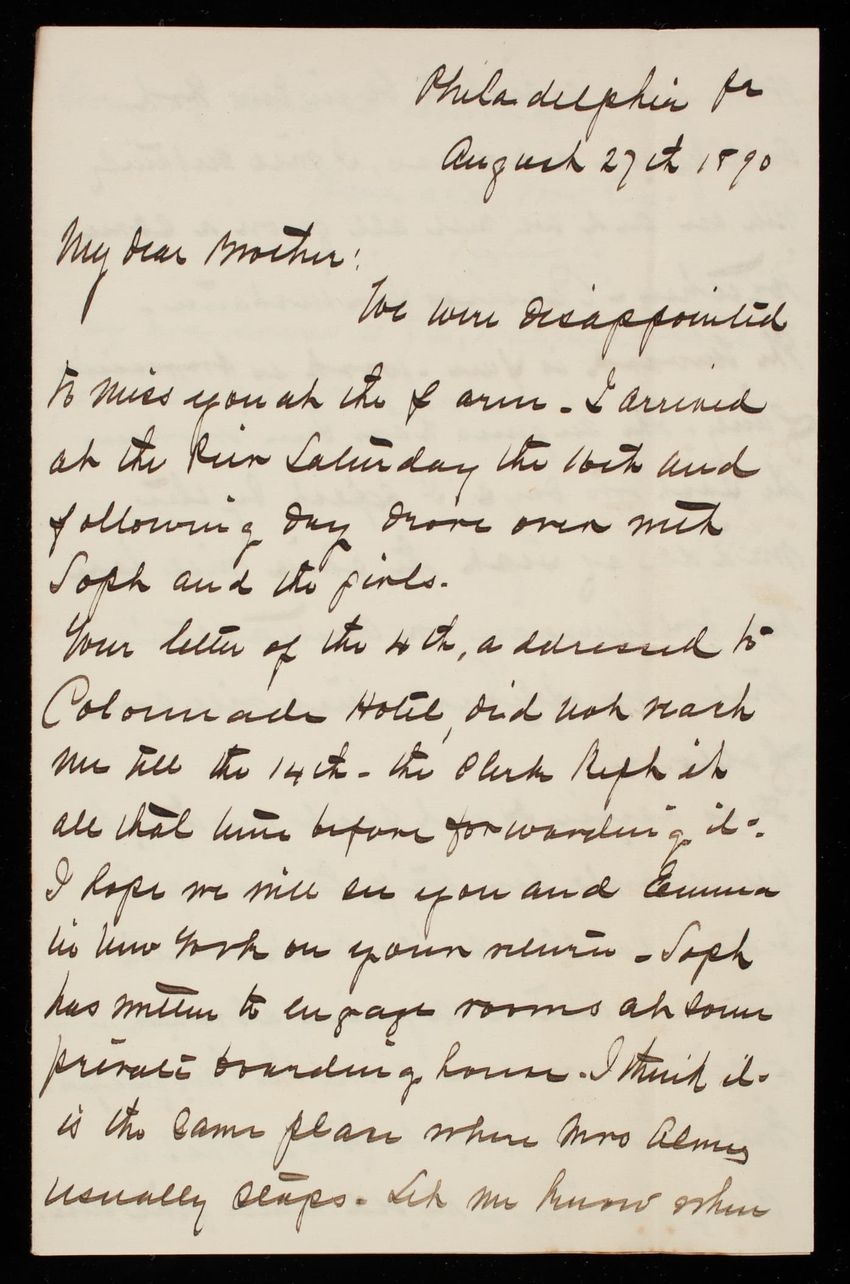 Philadelphia Pa
August 27th 1890
My dear Brother:
We were disappointed
to miss you at the farm - I arrived
at the Pier Saturday the 16th and
following day drove over with
Soph and the girls.
Your letter of the 4th, addressed to
Colonnade Hotel, did not reach
me till the 14th - the Clerk kept it
all that time before forwarding it.
I hope we will see you and Emma
in New York on your return - Soph
has written to engage rooms at some
private boarding house. I think it
is the same place where Mrs
usually stops. Let me know when